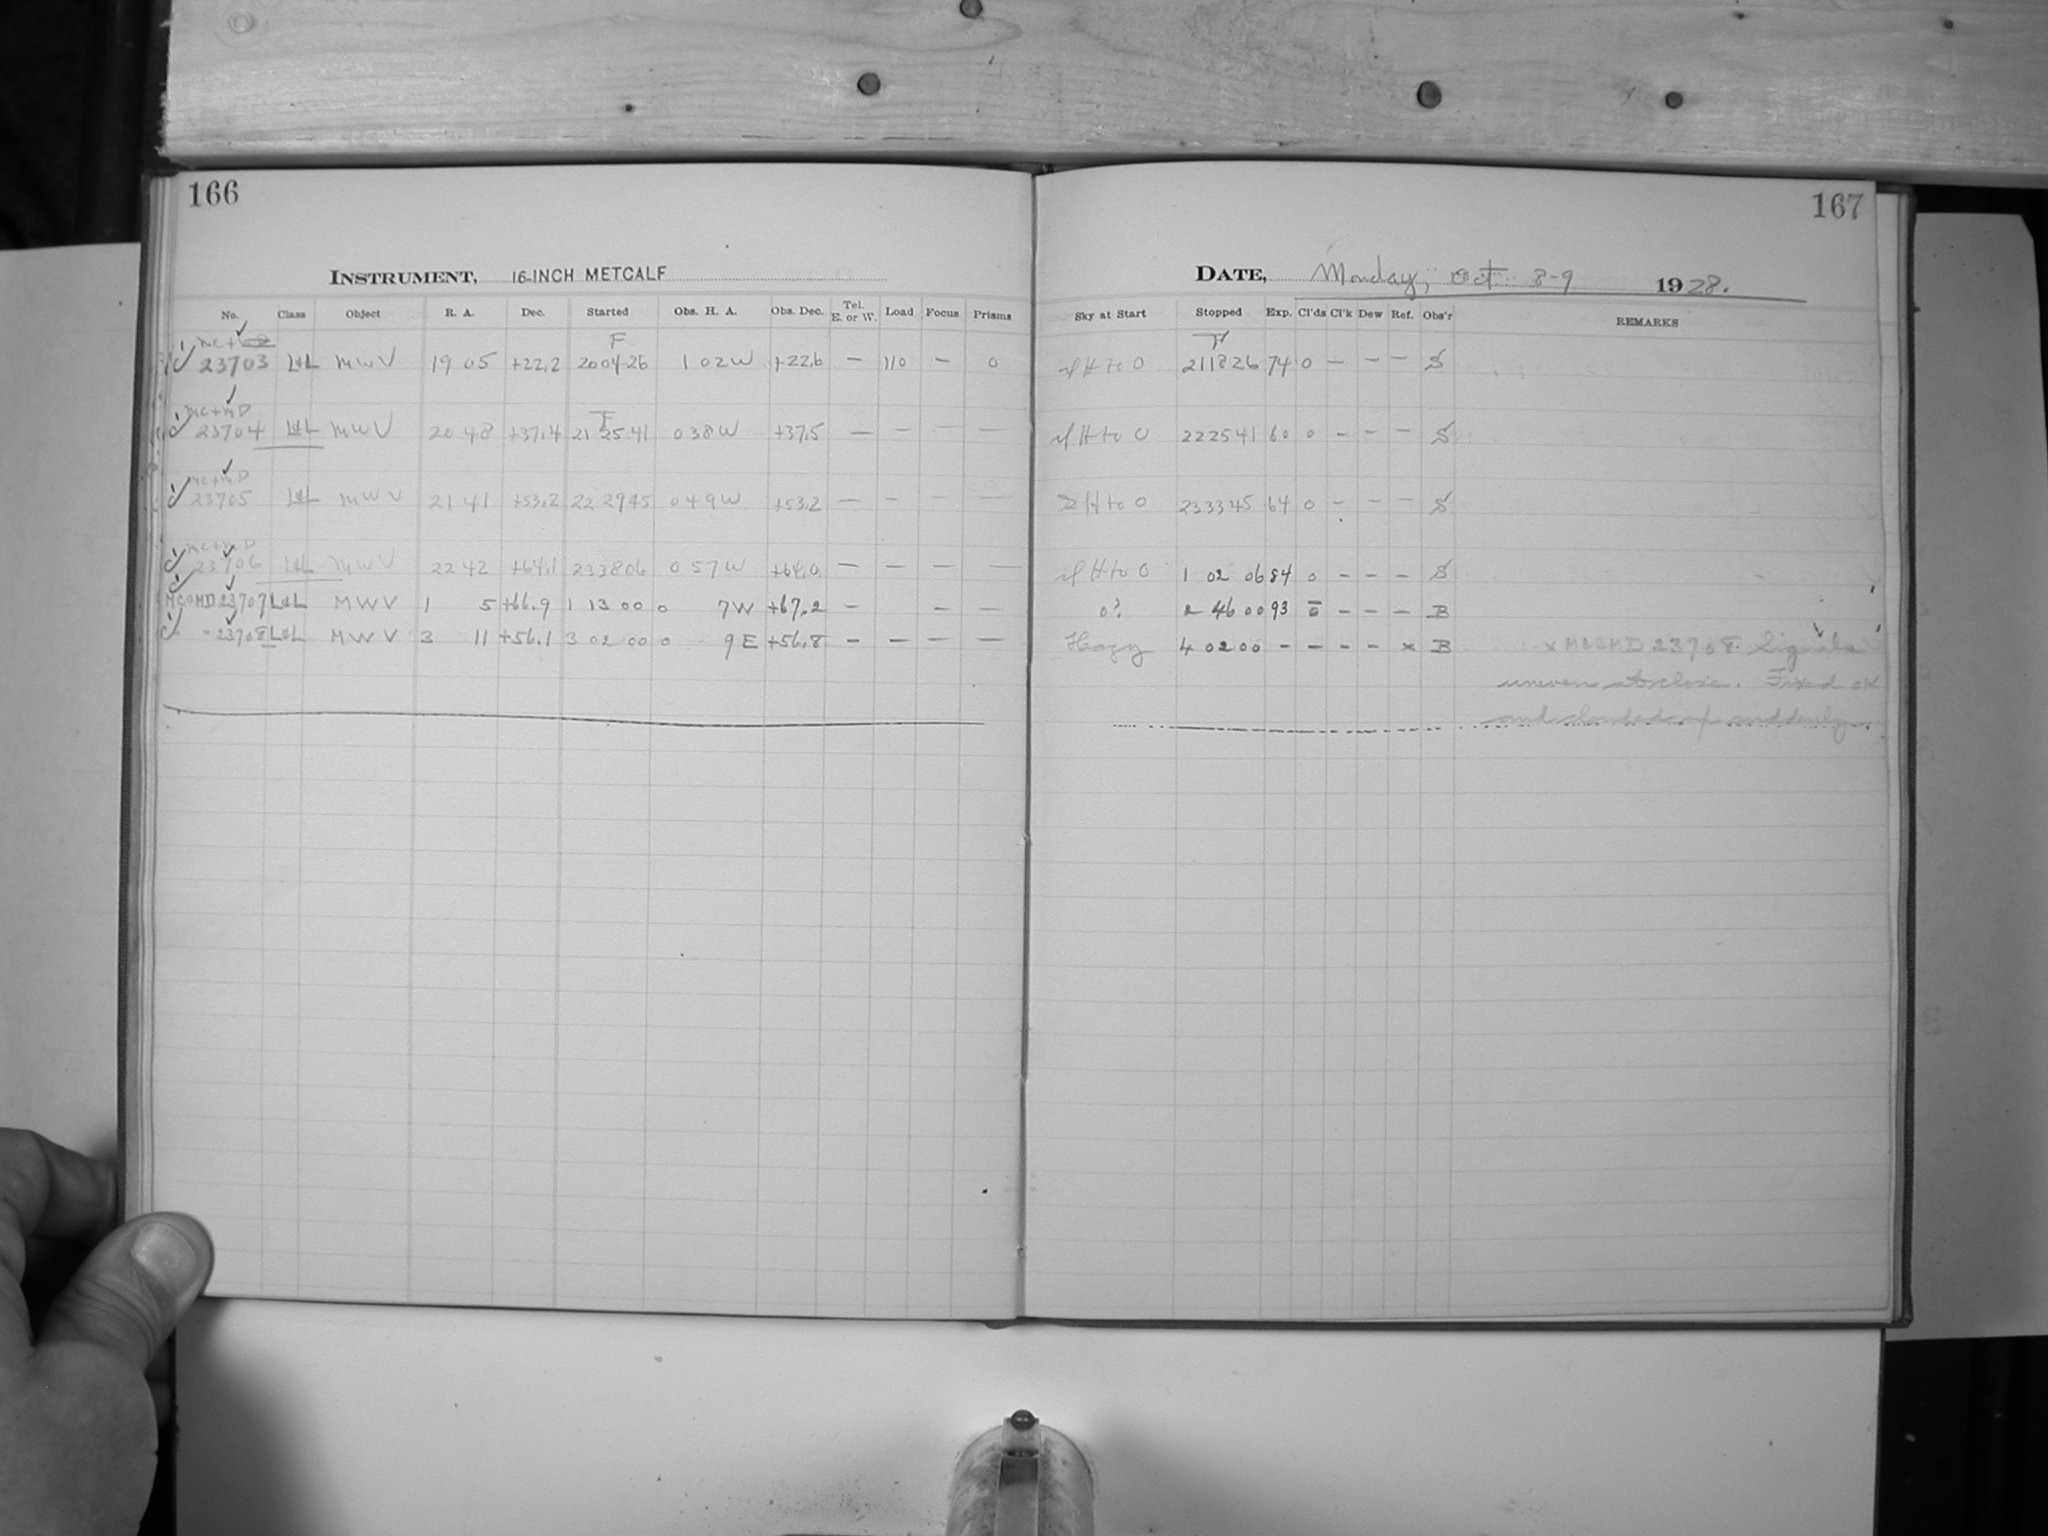 166
167
INSTRUMENT, 16-INCH METCALF
DATE, Monday, Oct 8-9 1928.
No. Class Object R. A. Dec. Started Obs. H. A. Obs. Dec. Tel. E. or W. Load Focus Prisms
Sky at Start Stopped Exp. Cl'ds Cl'k Dew Ref. Obs'r REMARKS
MC+
F
F
23703 L+L MWV 19 05 +22.2 20 04 26 1 02 W +22.6 — 110 — 0
H to 0 21 18 26 74 0 — — — S
MC+MD
F
23704 L+L MWV 20 48 +37.4 21 25 41 0 38 W +37.5 — — — —
H to 0 22 25 41 60 0 — — — S
MC+MD
23705 L+L MWV 21 41 +53.2 22 29 45 0 49 W +53.2 — — — —
H to 0 23 33 45 64 0 — — — S
MC+MD
23706 L+L MWV 22 42 +64.1 23 38 06 0 57 W +64.0 — — — —
H to 0 1 02 06 84 0 — — — S
MC&MD 23707 L&L MWV 1 5 +66.9 1 13 00 0 7W +67.2 — — —
0? 2 46 00 93 0 — — — B
" 23708 L&L MWV 3 11 +56.1 3 02 00 0 9E +56.8 — — — —
Hazy 4 02 00 — — — — x B x MC&MD 23708 Signals
uneven at close. Fixed OK
and clouded up suddenly.